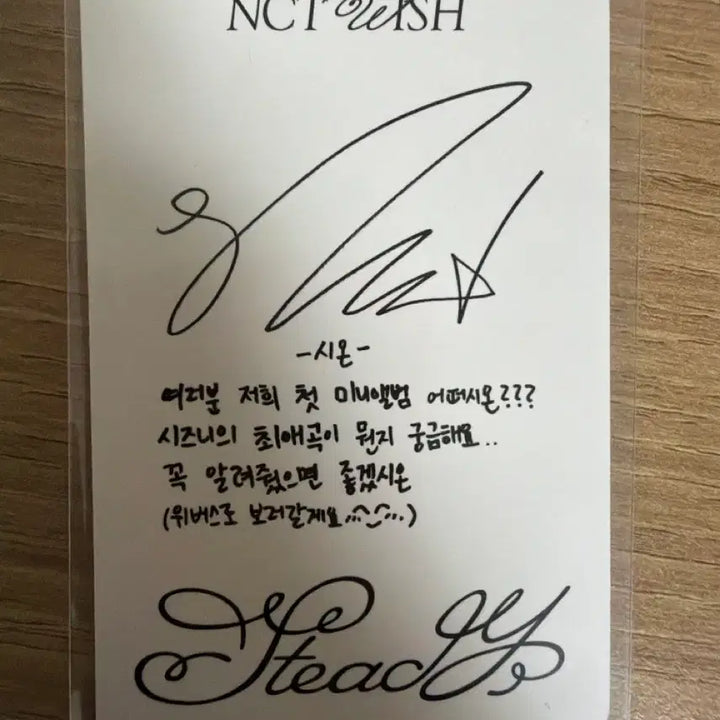 NCT WISH
-시온-
여러분 저희 첫 미니앨범 어떠시온???
시즈니의 최애곡이 뭔지 궁금해요..
꼭 알려줬으면 좋겠시온
(위버스로 보러갈게요 ..^_^..)
Steady